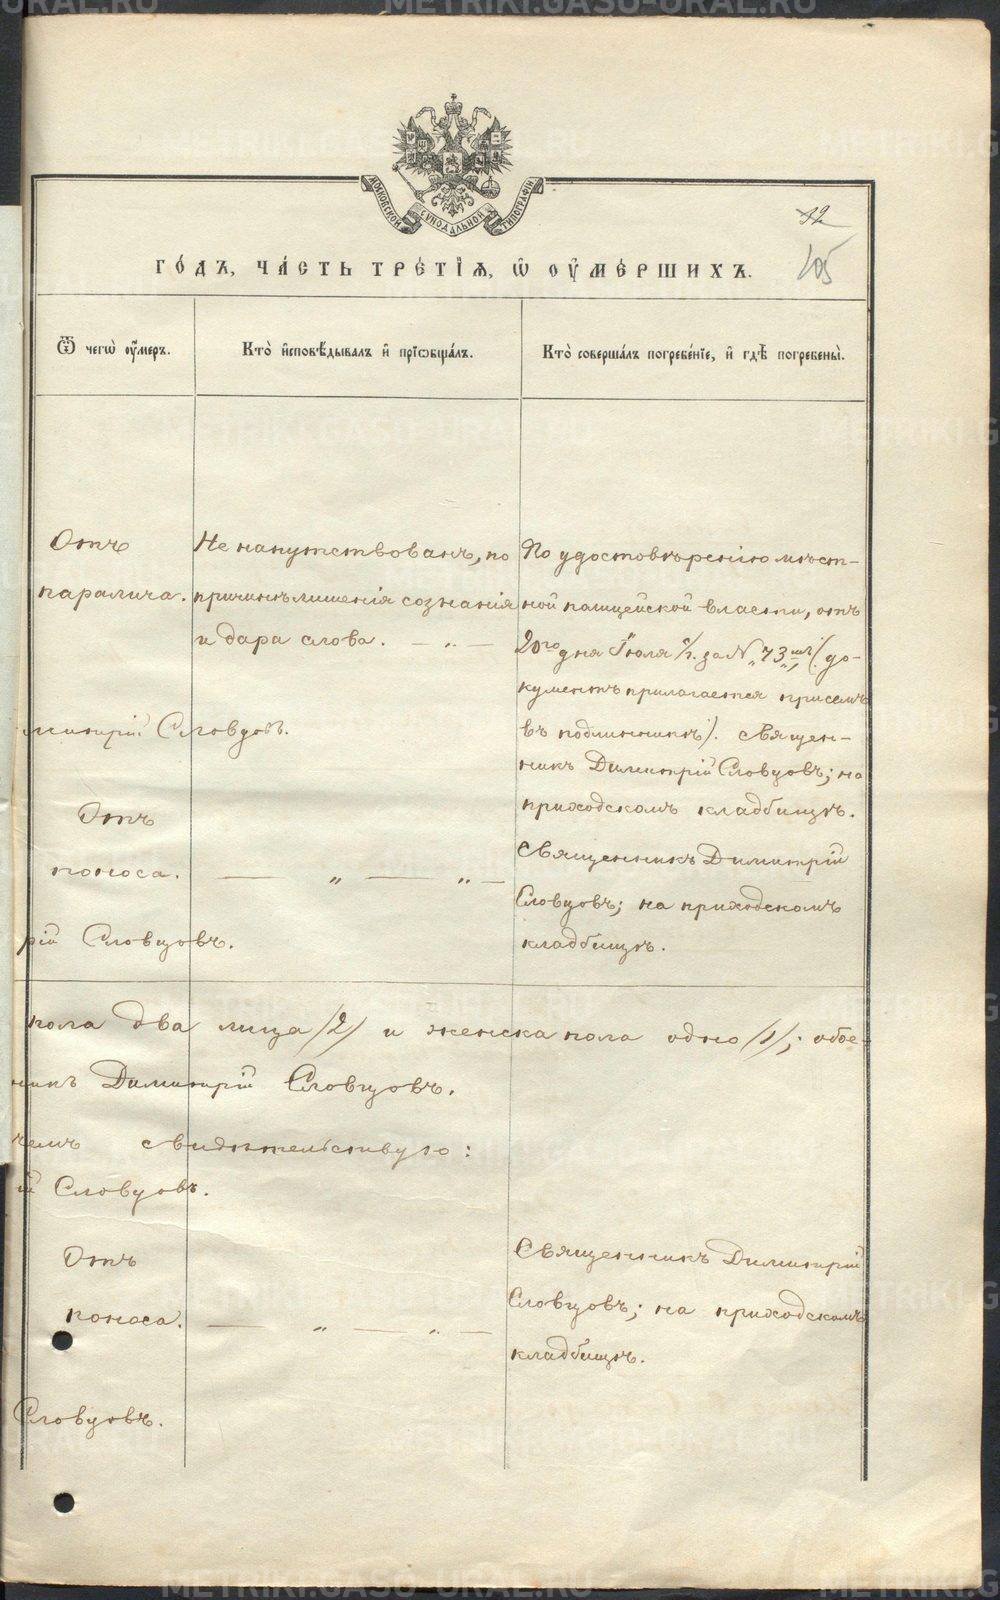 METRIKI.GASO-URAL.RU
МОСКОВСКОЙ СѴНОДАЛЬНОЙ ТИПОГРАФІИ
32
105
ГО́ДЪ, ЧА́СТЬ ТРЕ́ТІѦ, Ѡ҆ ОУ҆МЕ́РШИХЪ.
Ѿ чегѡ̀ оу҆́меръ.
Кто̀ и҆сповѣ́дывалъ и҆ прїѡбща́лъ.
Кто̀ соверша́лъ погребе́нїе, и҆ гдѣ̀ погребены̀.
Отъ
паралича.
Не напутствованъ, по
причинѣ лишенія сознанія
и дара слова. — „ —
По удостовѣренію мѣст-
ной полицейской власти, отъ
20го дня Іюля с/г. за № „73„ (до-
кументъ прилагается при семъ
въ подлинникѣ). Священ-
никъ Димитрій Словцовъ; на
приходскомъ кладбищѣ.
митрій Словцовъ.
Отъ
поноса.
— „ — „ —
Священникъ Димитрій
Словцовъ; на приходскомъ
кладбищѣ.
рій Словцовъ.
пола два лица /2/ и женска пола одно /1/; обое-
никъ Димитрій Словцовъ.
чемъ свидѣтельствую:
ій Словцовъ.
Отъ
поноса.
— „ — „ —
Священникъ Димитрій
Словцовъ; на приходскомъ
кладбищѣ.
Словцовъ.